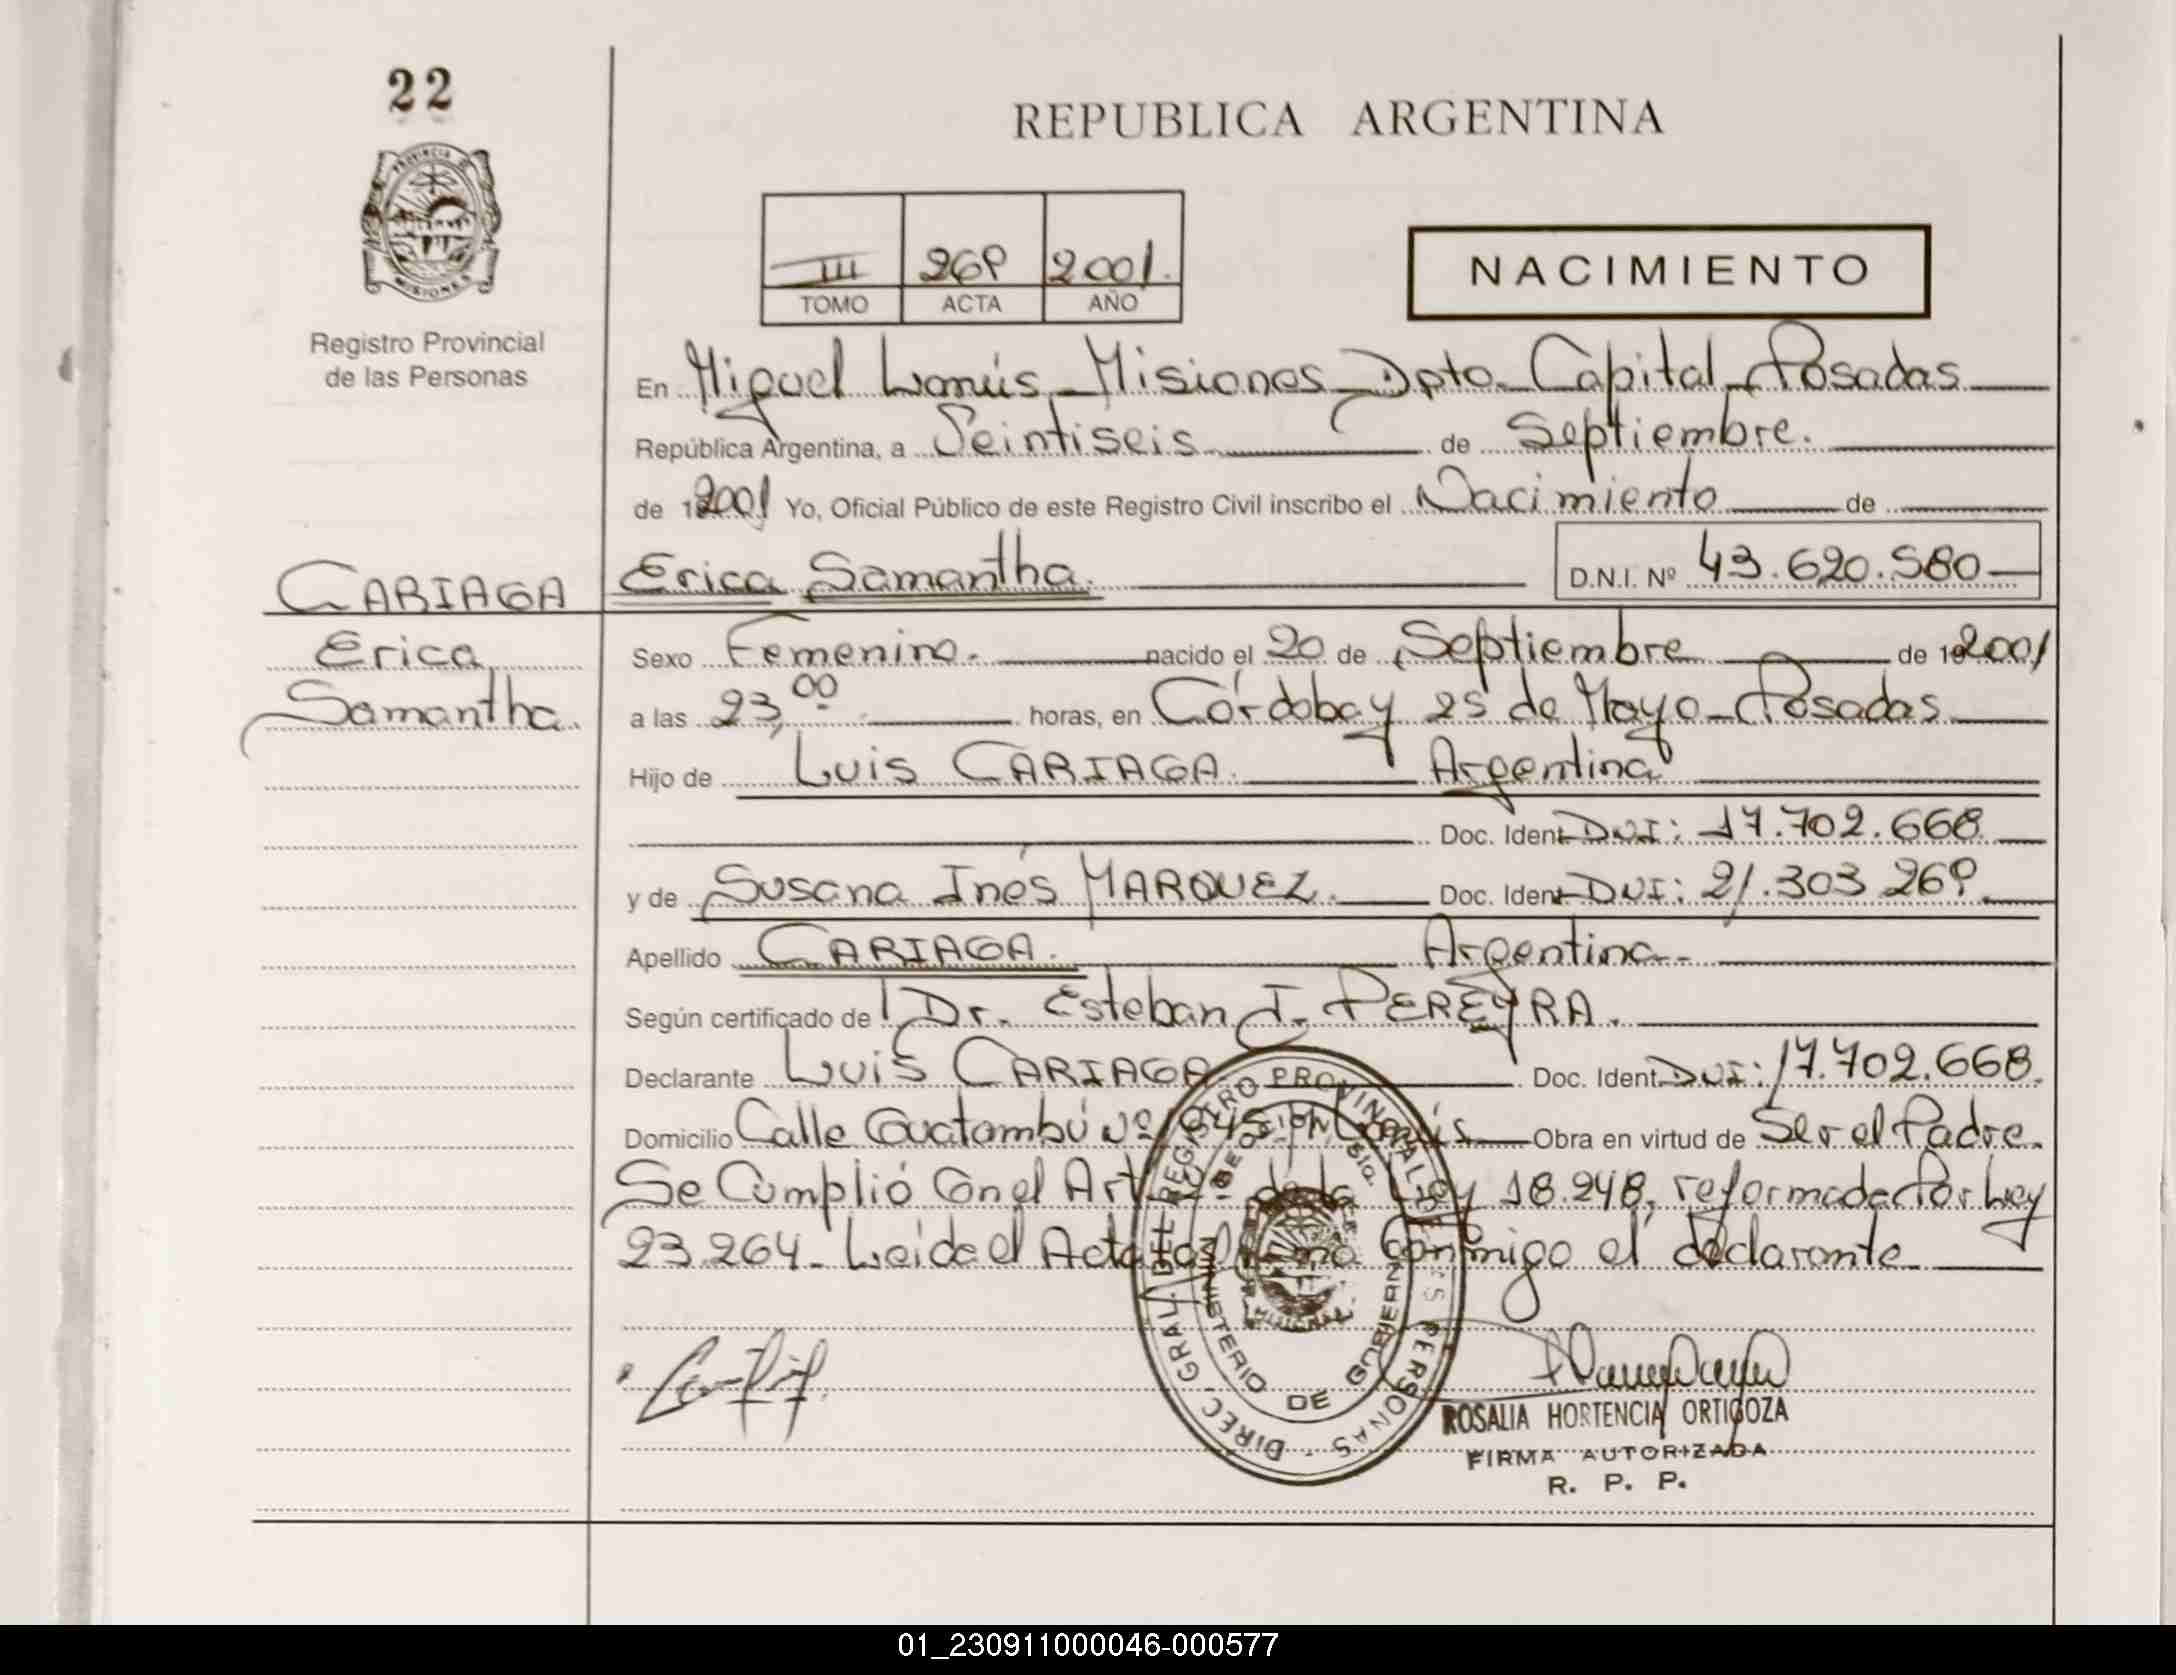 22
REPUBLICA ARGENTINA
PROVINCIA DE MISIONES
Registro Provincial
de las Personas
III 269 2001.
TOMO ACTA AÑO
NACIMIENTO
En Miguel Lanús - Misiones - Dpto. Capital - Posadas
República Argentina, a Veintiseis de Septiembre.
de 2001 Yo, Oficial Público de este Registro Civil inscribo el Nacimiento de
CARIAGA Erica Samantha. D.N.I. Nº 43.620.580
Erica Sexo Femenino. nacido el 20 de Septiembre de 2001
Samantha. a las 23,00 horas, en Córdoba y 25 de Mayo - Posadas
Hijo de Luis CARIAGA. Argentina
Doc. Ident. DNI: 17.702.668
y de Susana Inés MARQUEZ. Doc. Ident. DNI: 21.303.269
Apellido CARIAGA. Argentina -
Según certificado de Dr. Esteban J. PEREYRA.
Declarante Luis CARIAGA Doc. Ident. DNI: 17.702.668.
Domicilio Calle Guatambú Nº Lanús Obra en virtud de Ser el Padre.
Se Cumplió Con el Art. de la Ley 18.248, reformada Por Ley
23.264 - Leida el Acta Conmigo el declarante
DIREC. GRAL. DE REGISTRO PROVINCIAL DE LAS PERSONAS
MINISTERIO DE GOBIERNO
ROSALIA HORTENCIA ORTIGOZA
FIRMA AUTORIZADA
R. P. P.
01_230911000046-000577